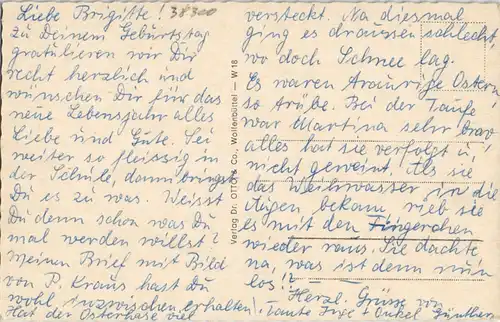 Liebe Brigitte! 38300
zu Deinem Geburtstag
gratulieren wir Dir
recht herzlich und
wünschen Dir für das
neue Lebensjahr alles
Liebe und Gute. Sei
weiter so fleissig in
der Schule, dann bringst
Du es zu was. Weisst
Du denn schon was Du
mal werden willst?
Meinen Brief mit Bild
von P. Kraus hast Du
wohl inzwischen erhalten.
Hat der Osterhase viel
Verlag Dr. OTTO & Co., Wolfenbüttel — W 18
versteckt. Na diesmal
ging es draussen schlecht
wo doch Schnee lag.
Es waren traurige Ostern,
so trübe. Bei der Taufe
war Martina sehr brav
alles hat sie verfolgt u.
nicht geweint. Als sie
das Weihwasser in die
Augen bekam, rieb sie
es mit den Fingerchen
wieder raus. Sie dachte
na, was ist denn nun
los!? Herzl. Grüsse von
Tante + Onkel Günther